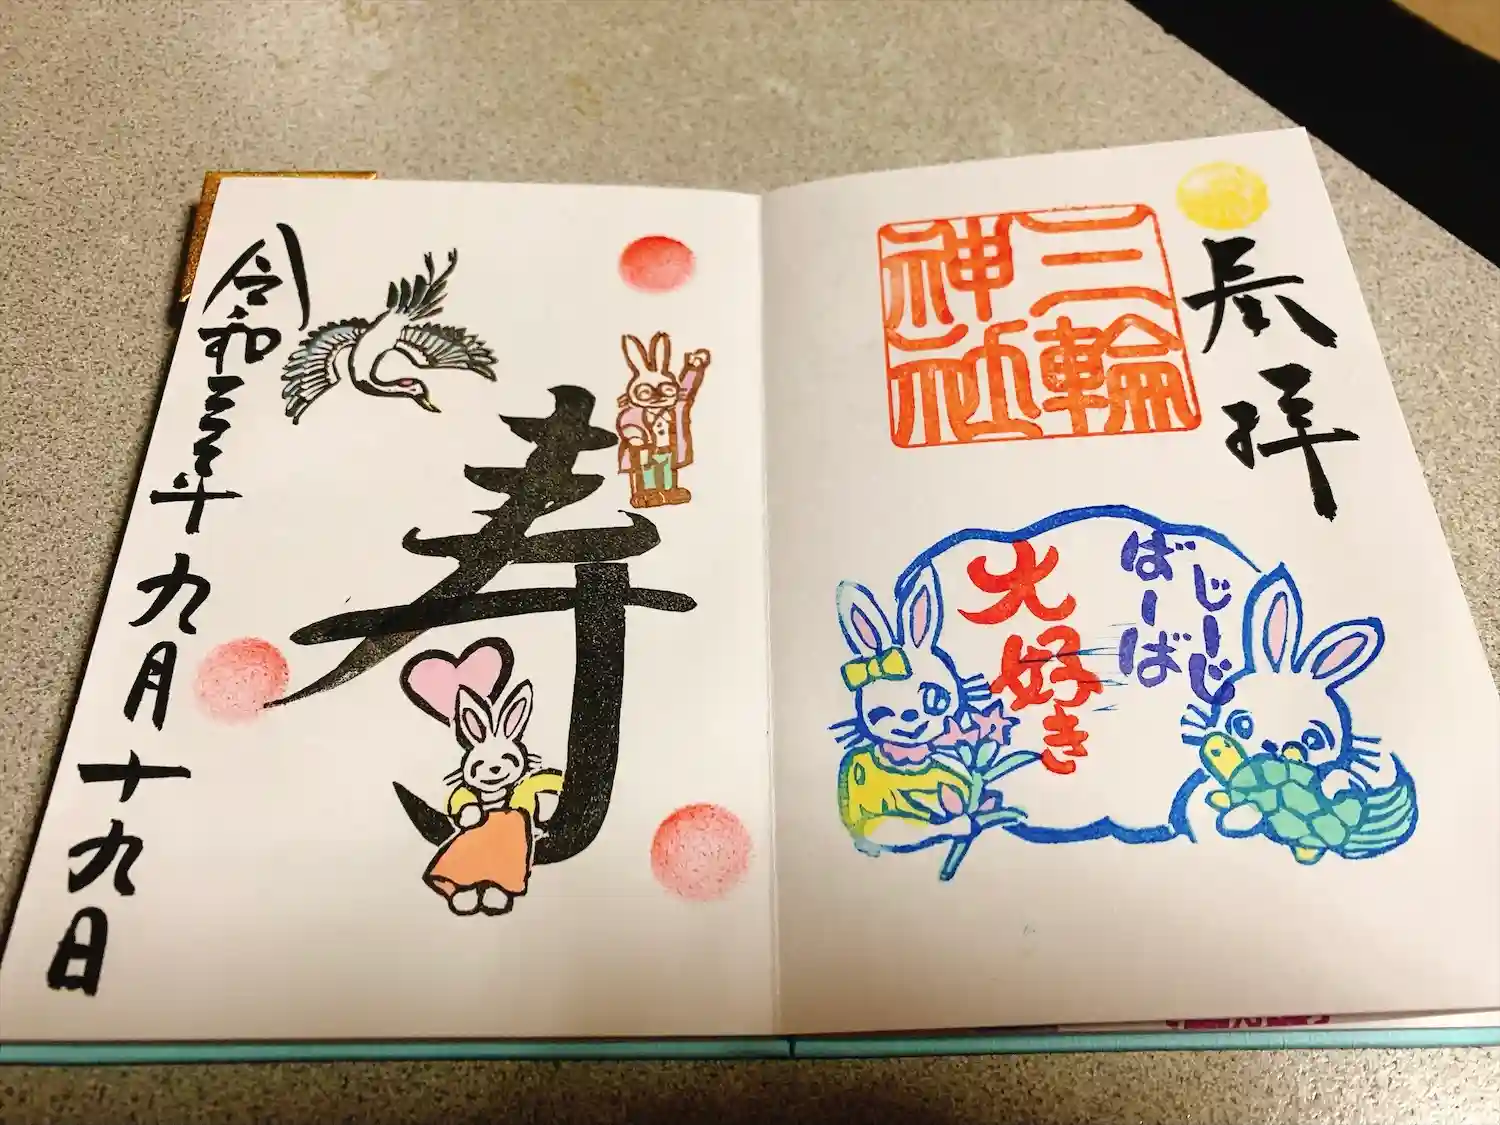 奉拝
三輪
神社
じーじ
ばーば
大好き
寿
令和三年九月十九日